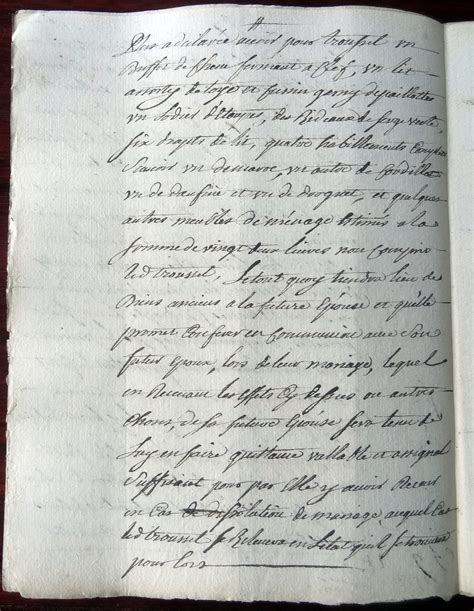 Plus a declarée avoir pour troussel un
Buffet de fermant a Clef, un lit
assorty de et garny de paillottes
un d'etoupes, des Redeaux de serge verte
six draps de lit, quatre habillements
Scavoir un de maroc, un autre de Cordillat
un de et un de droguet, et quelques
autres meubles de ménage Estimés a la
somme de vingt livres non Compris
led troussel, le tout quoy tiendra lieu de
Biens anciens a la future Epouse et qu'elle
promet Conferer en Communion avec Son
futur Epoux, lors de leur mariage, lequel
en Recevant les effets Cy dessus ou autres
choses de sa future Epouse sera tenu de
luy en faire quittance vallable et assignal
Suffisant pour par Elle y avoir Recours
en Cas de dissolution de mariage auquel Cas
led troussel se Relevera en L'etat qu'il se trouvera
pour lors